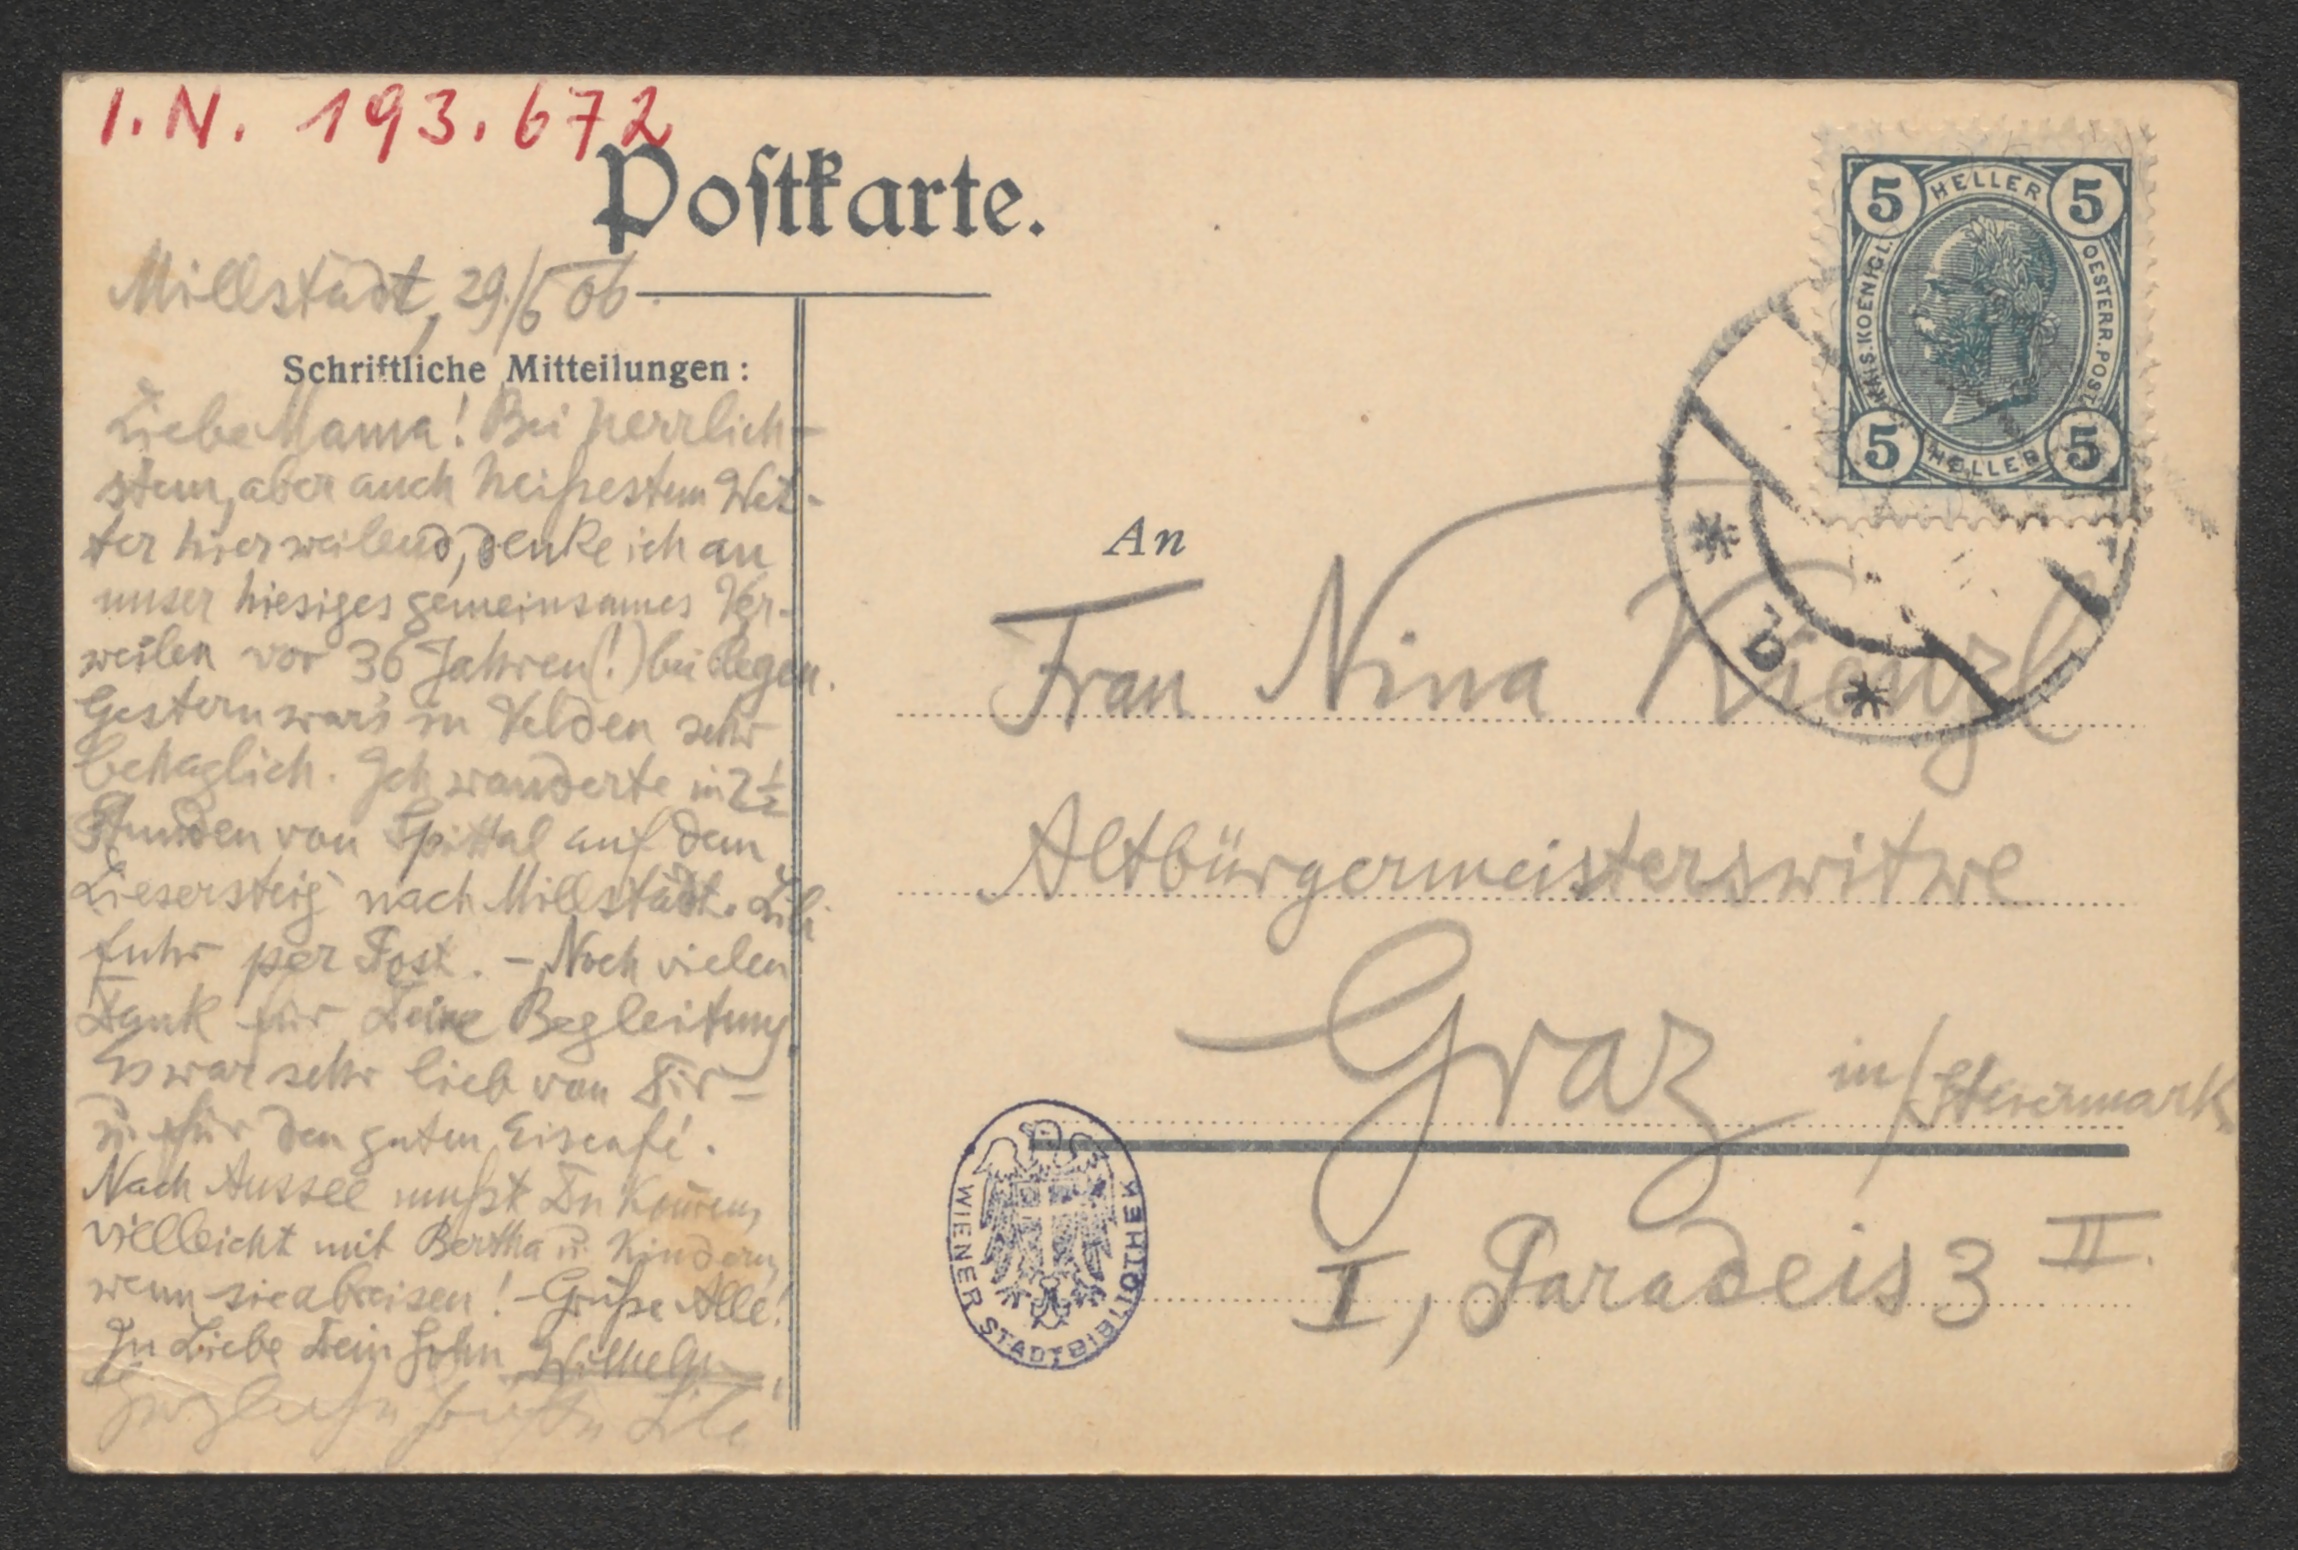 I.N. 193.672
Postkarte.
Millstadt, 29./6 06.
Schriftliche Mitteilungen:
Liebe Mama! Bei herrlich-
stem, aber auch heißestem Wet-
ter hier weilend, denke ich an
unser hiesiges gemeinsames Ver-
weilen vor 36 Jahren(!) bei Regen.
Gestern war's in Velden sehr
behaglich. Ich wanderte in 2½
Stunden von Spittal auf dem
Liesersteig nach Millstadt. Lili
fuhr per Post. – Noch vielen
Dank für Deine Begleitung.
Es war sehr lieb von Dir –
u. für den guten Eiscafé.
Nach Aussee mußt Du kom̅en,
vielleicht mit Bertha u. Kindern,
wenn sie abreisen! – Grüße Alle!
In Liebe Dein Sohn Wilhelm
Lili
5 HELLER 5
KAIS. KOENIGL. OESTERR. POST
5 HELLER 5
An
Frau Nina Kienzl
Altbürgermeisterswitwe
Graz in/Steiermark
I, Paradeis 3 II.
WIENER STADTBIBLIOTHEK